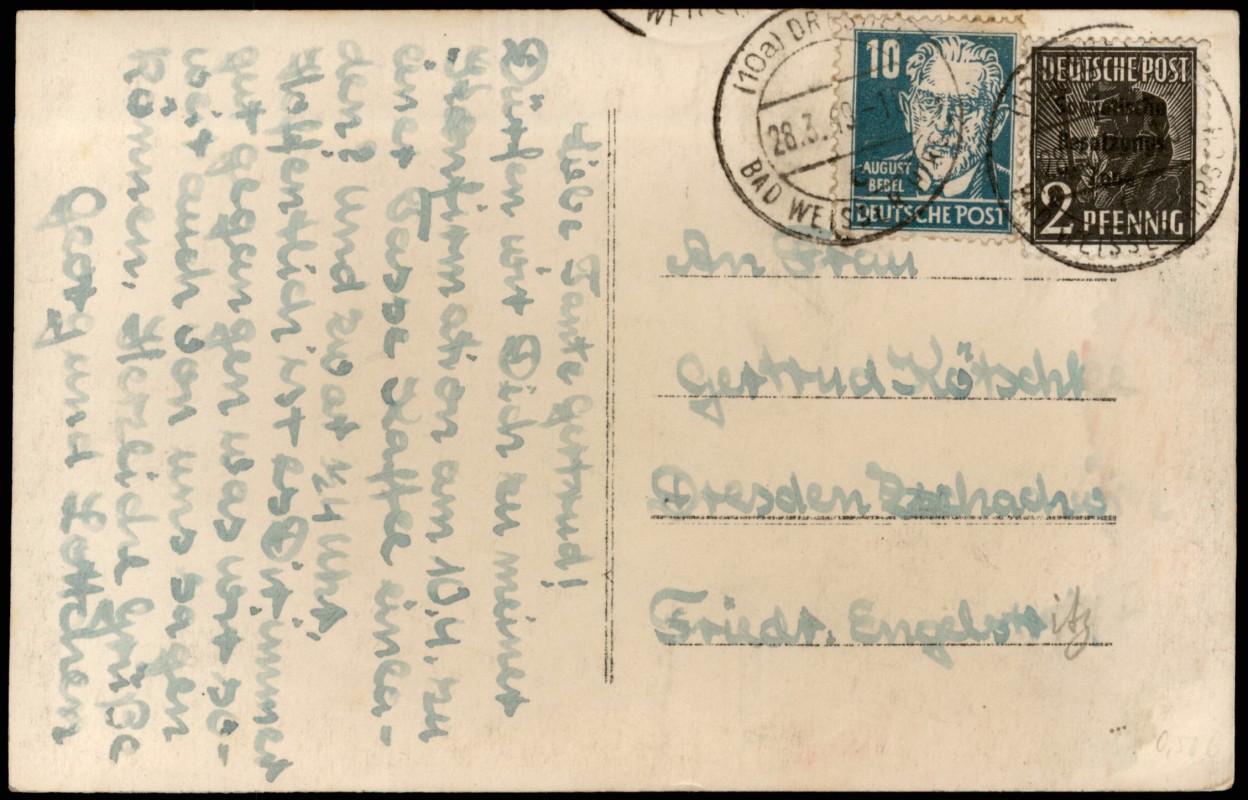 Liebe Tante Gertrud!
Dürfen wir Dich zu meiner
Konfirmation am 10.4. zu
einer Tasse Kaffe einla-
den? und zwar 1/4 Uhr!
Hoffentlich ist es Dir immer
gut gegangen was wir so-
weit auch von uns sagen
können. Herzliche Grüße
Georg und Lottchen
(10a) DRESDEN
28.3.49
BAD WEISSER HIRSCH
10
AUGUST
BEBEL
DEUTSCHE POST
DEUTSCHE POST
Sowjetische
Besatzungs
Zone
2 PFENNIG
BAD WEISSER HIRSCH
An Frau
Gertrud Kötschke
Dresden
Friedr. Engelsstr
itz